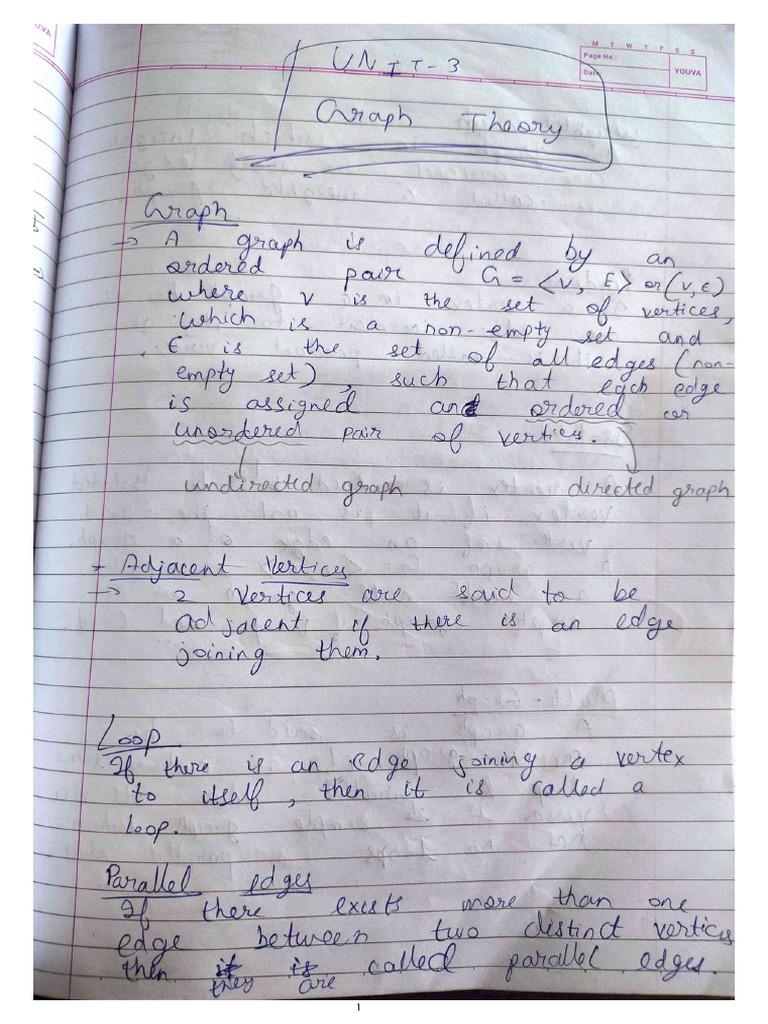 YUVA
M T W T F S S
Page No.:
Date:
YOUVA
UNIT-3
Graph Theory
Graph
→ A graph is defined by an
ordered pair G = <V, E> or (V, E)
where V is the set of vertices,
which is a non-empty set and
E is the set of all edges (non-
empty set), such that each edge
is assigned an ordered or
unordered pair of vertices.
undirected graph directed graph
Adjacent Vertices
→ 2 vertices are said to be
adjacent if there is an edge
joining them.
Loop
If there is an edge joining a vertex
to itself, then it is called a
loop.
Parallel edges
If there exists more than one
edge between two distinct vertices
then it is called parallel edges.
they are
1